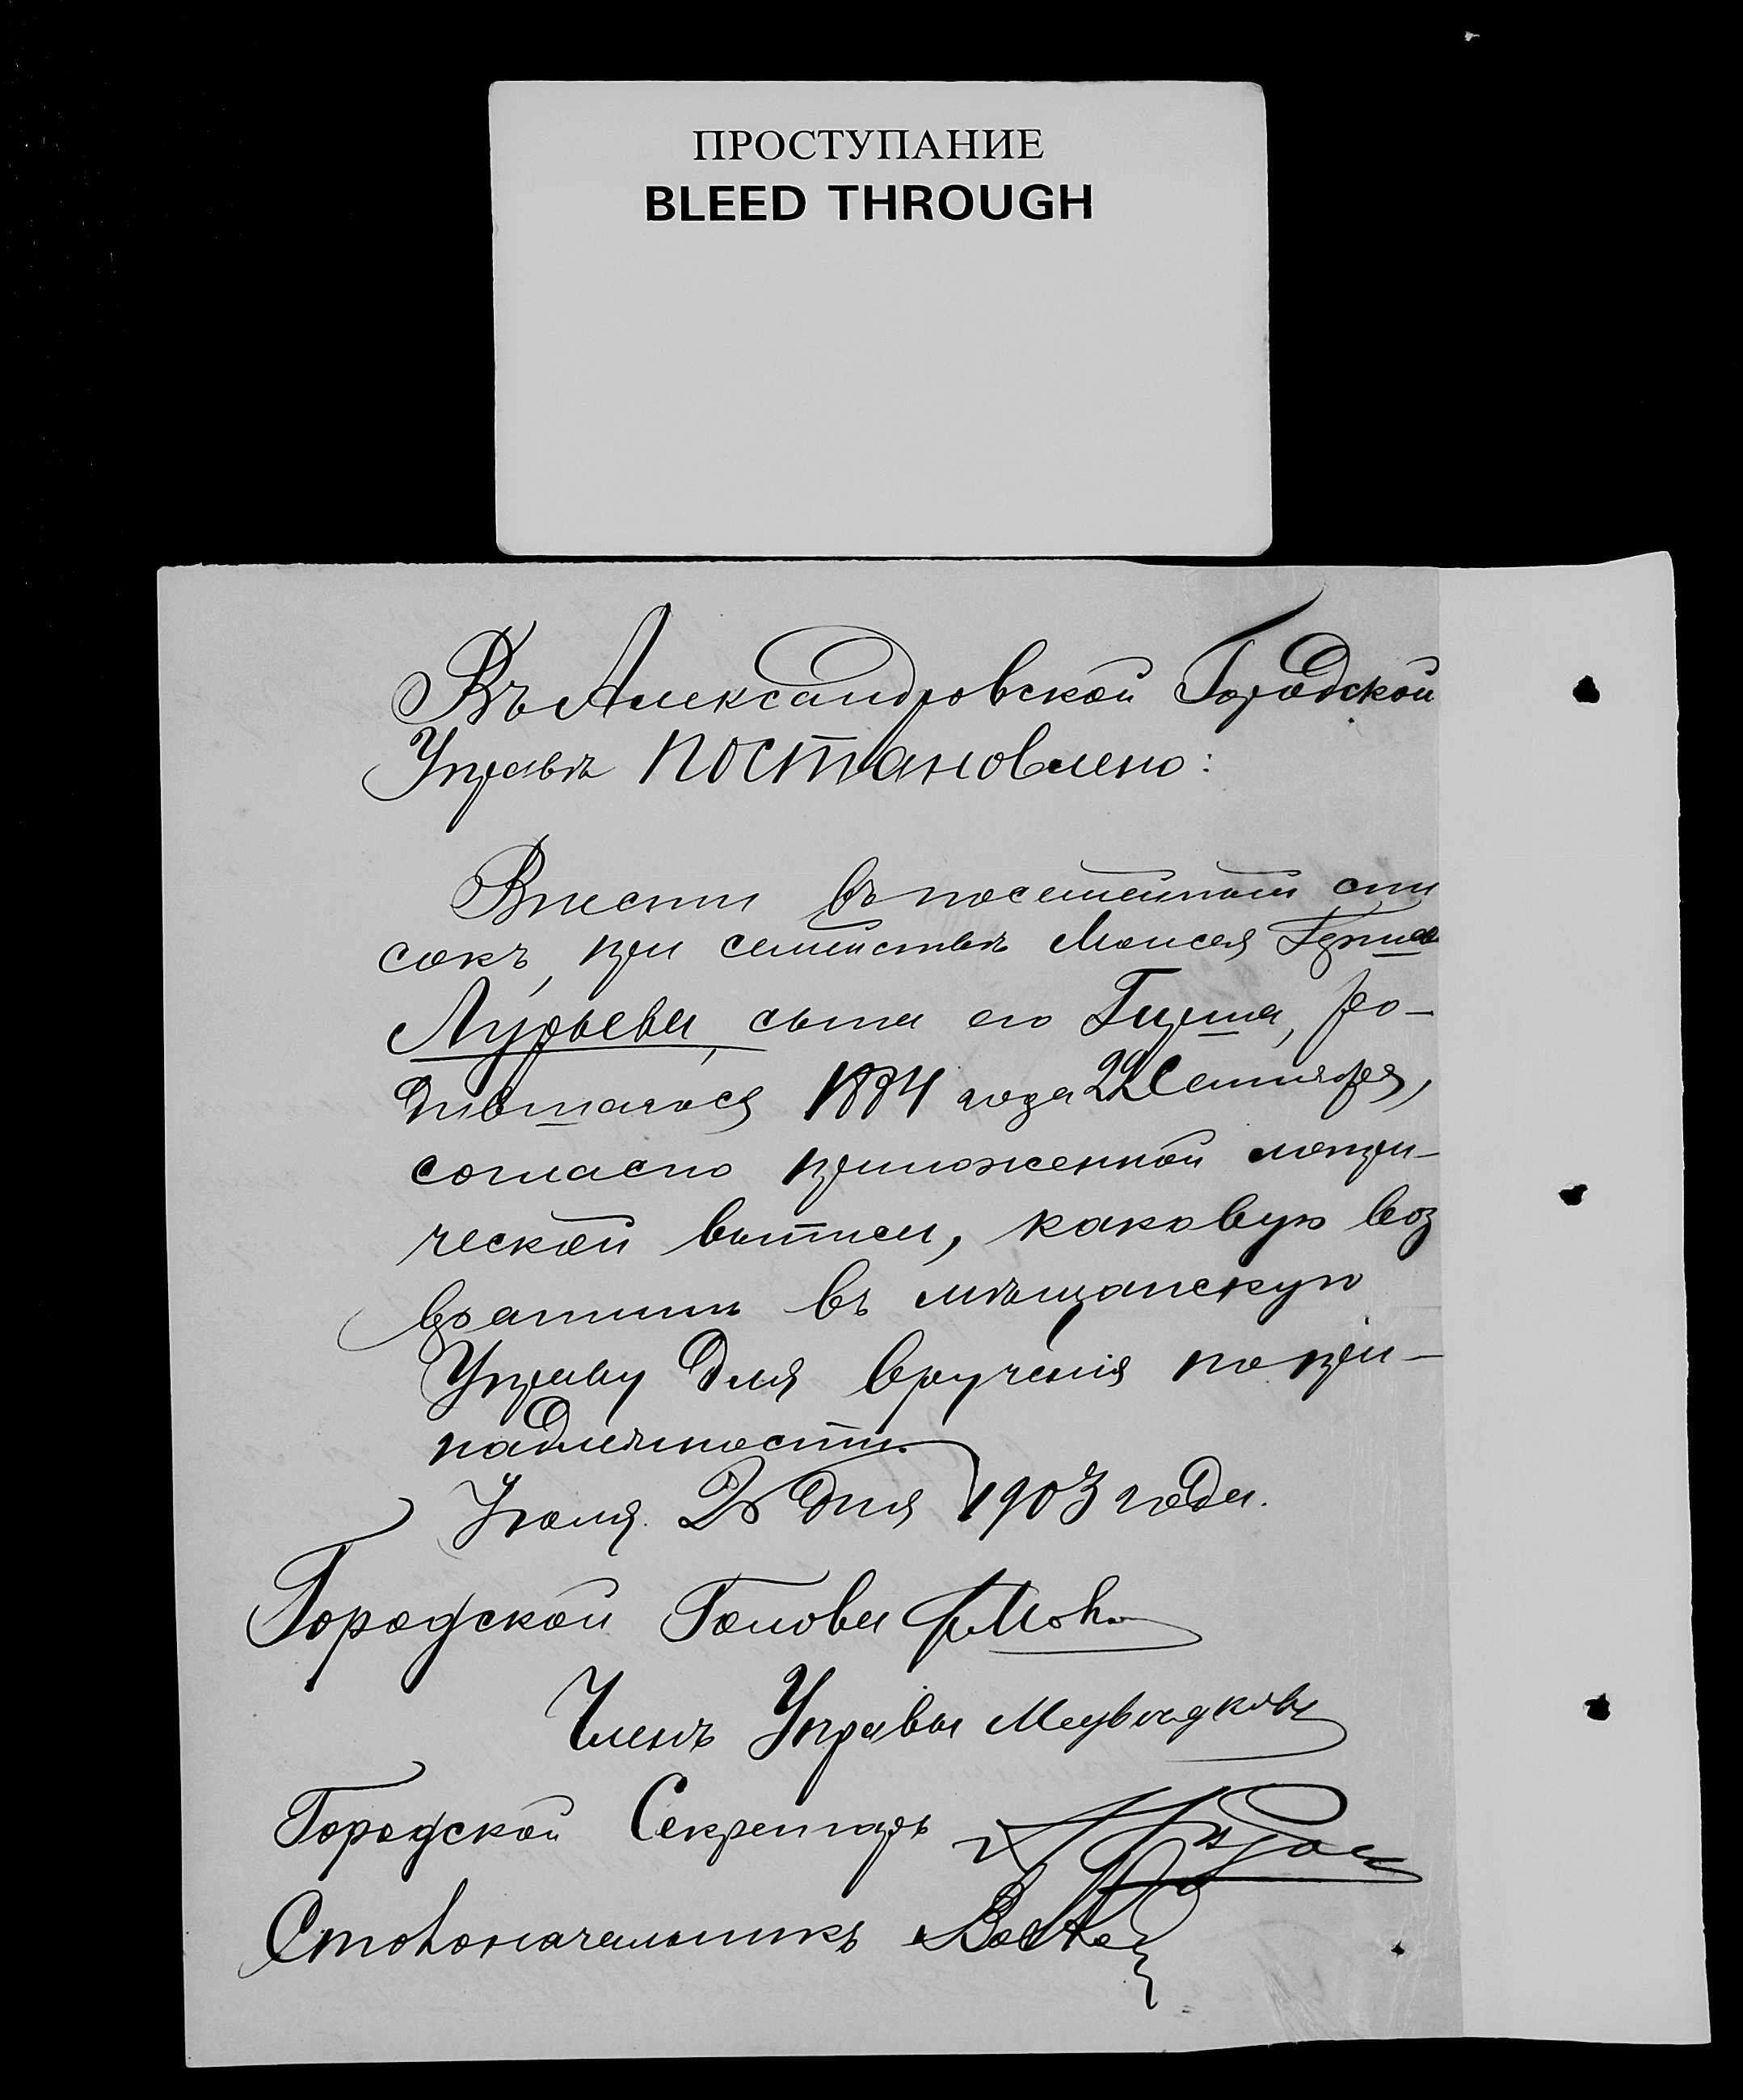 ПРОСТУПАНИЕ
BLEED THROUGH
Въ Александровской Городской
Управѣ постановлено:
Внести въ посемейный спи
сокъ, при семействѣ Моисея
Лурьева, сына его Гирша, ро-
дившагося 1884 года 22 Сентября,
согласно приложенной метри-
ческой выписи, каковую воз
вратить въ мѣщанскую
Управу для врученія по при-
надлежности.
Іюля дня 1903 года.
Городской Голова
Членъ Управы Медвѣдковъ
Городской Секретарь
Столоначальникъ